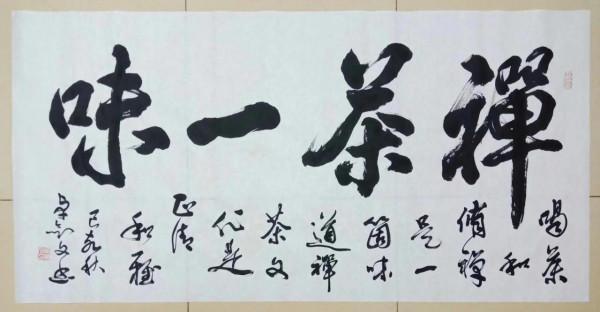 禪茶一味
喝茶
和
修禪
是一
箇味
道禪
茶文
化是
正清
和雅
己亥秋